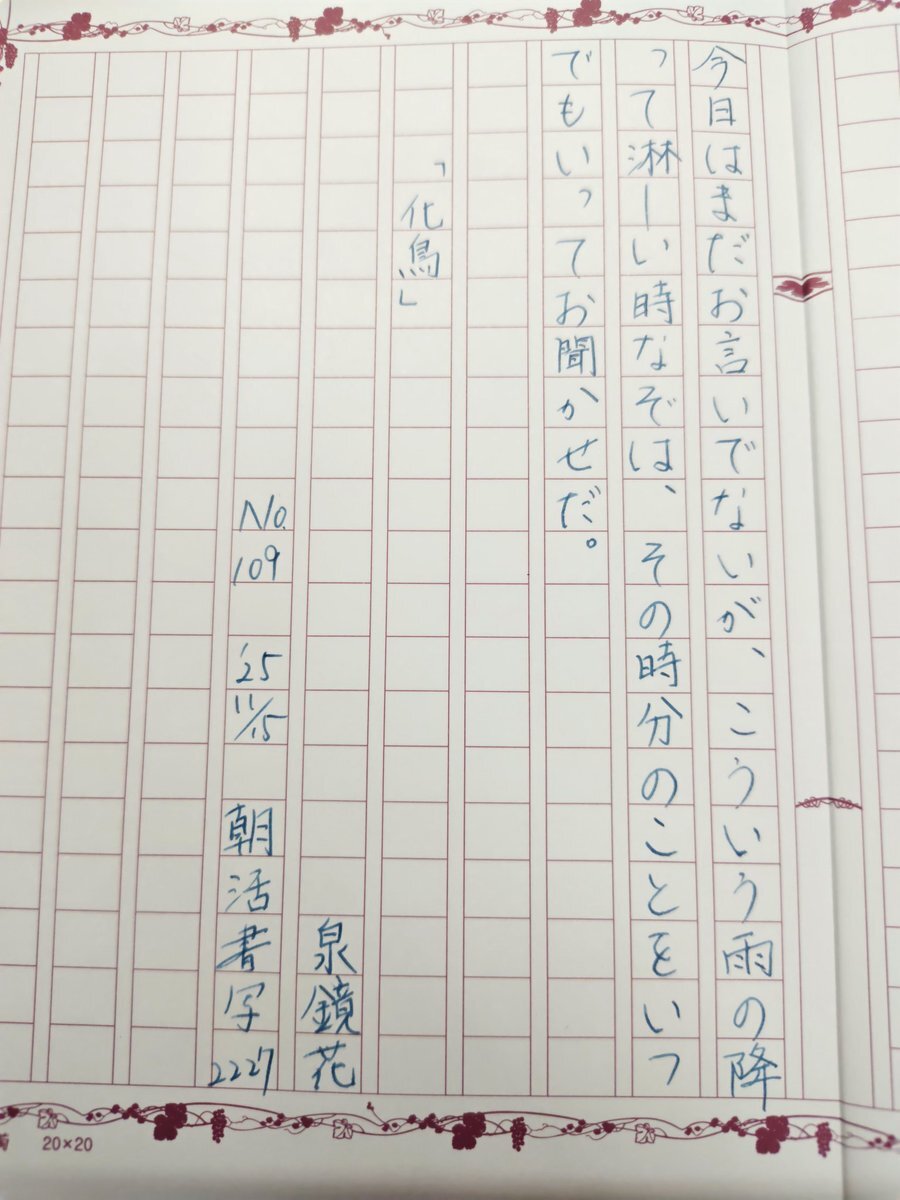 今日はまだお言いでないが、こういう雨の降
って淋しい時なぞは、その時分のことをいつ
でもいってお聞かせだ。
「化鳥」
泉鏡花
No.109 '25 11/15 朝活書写 2227
20×20